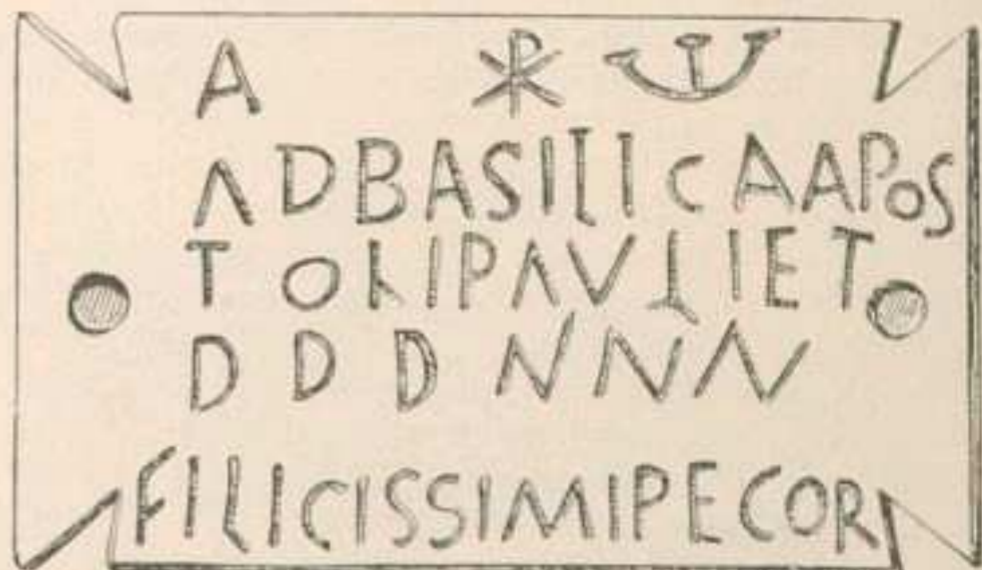 A ☧ ω
ADBASILICAAPOS
TOLIPAVLIET
DDDNNN
FILICISSIMIPECOR